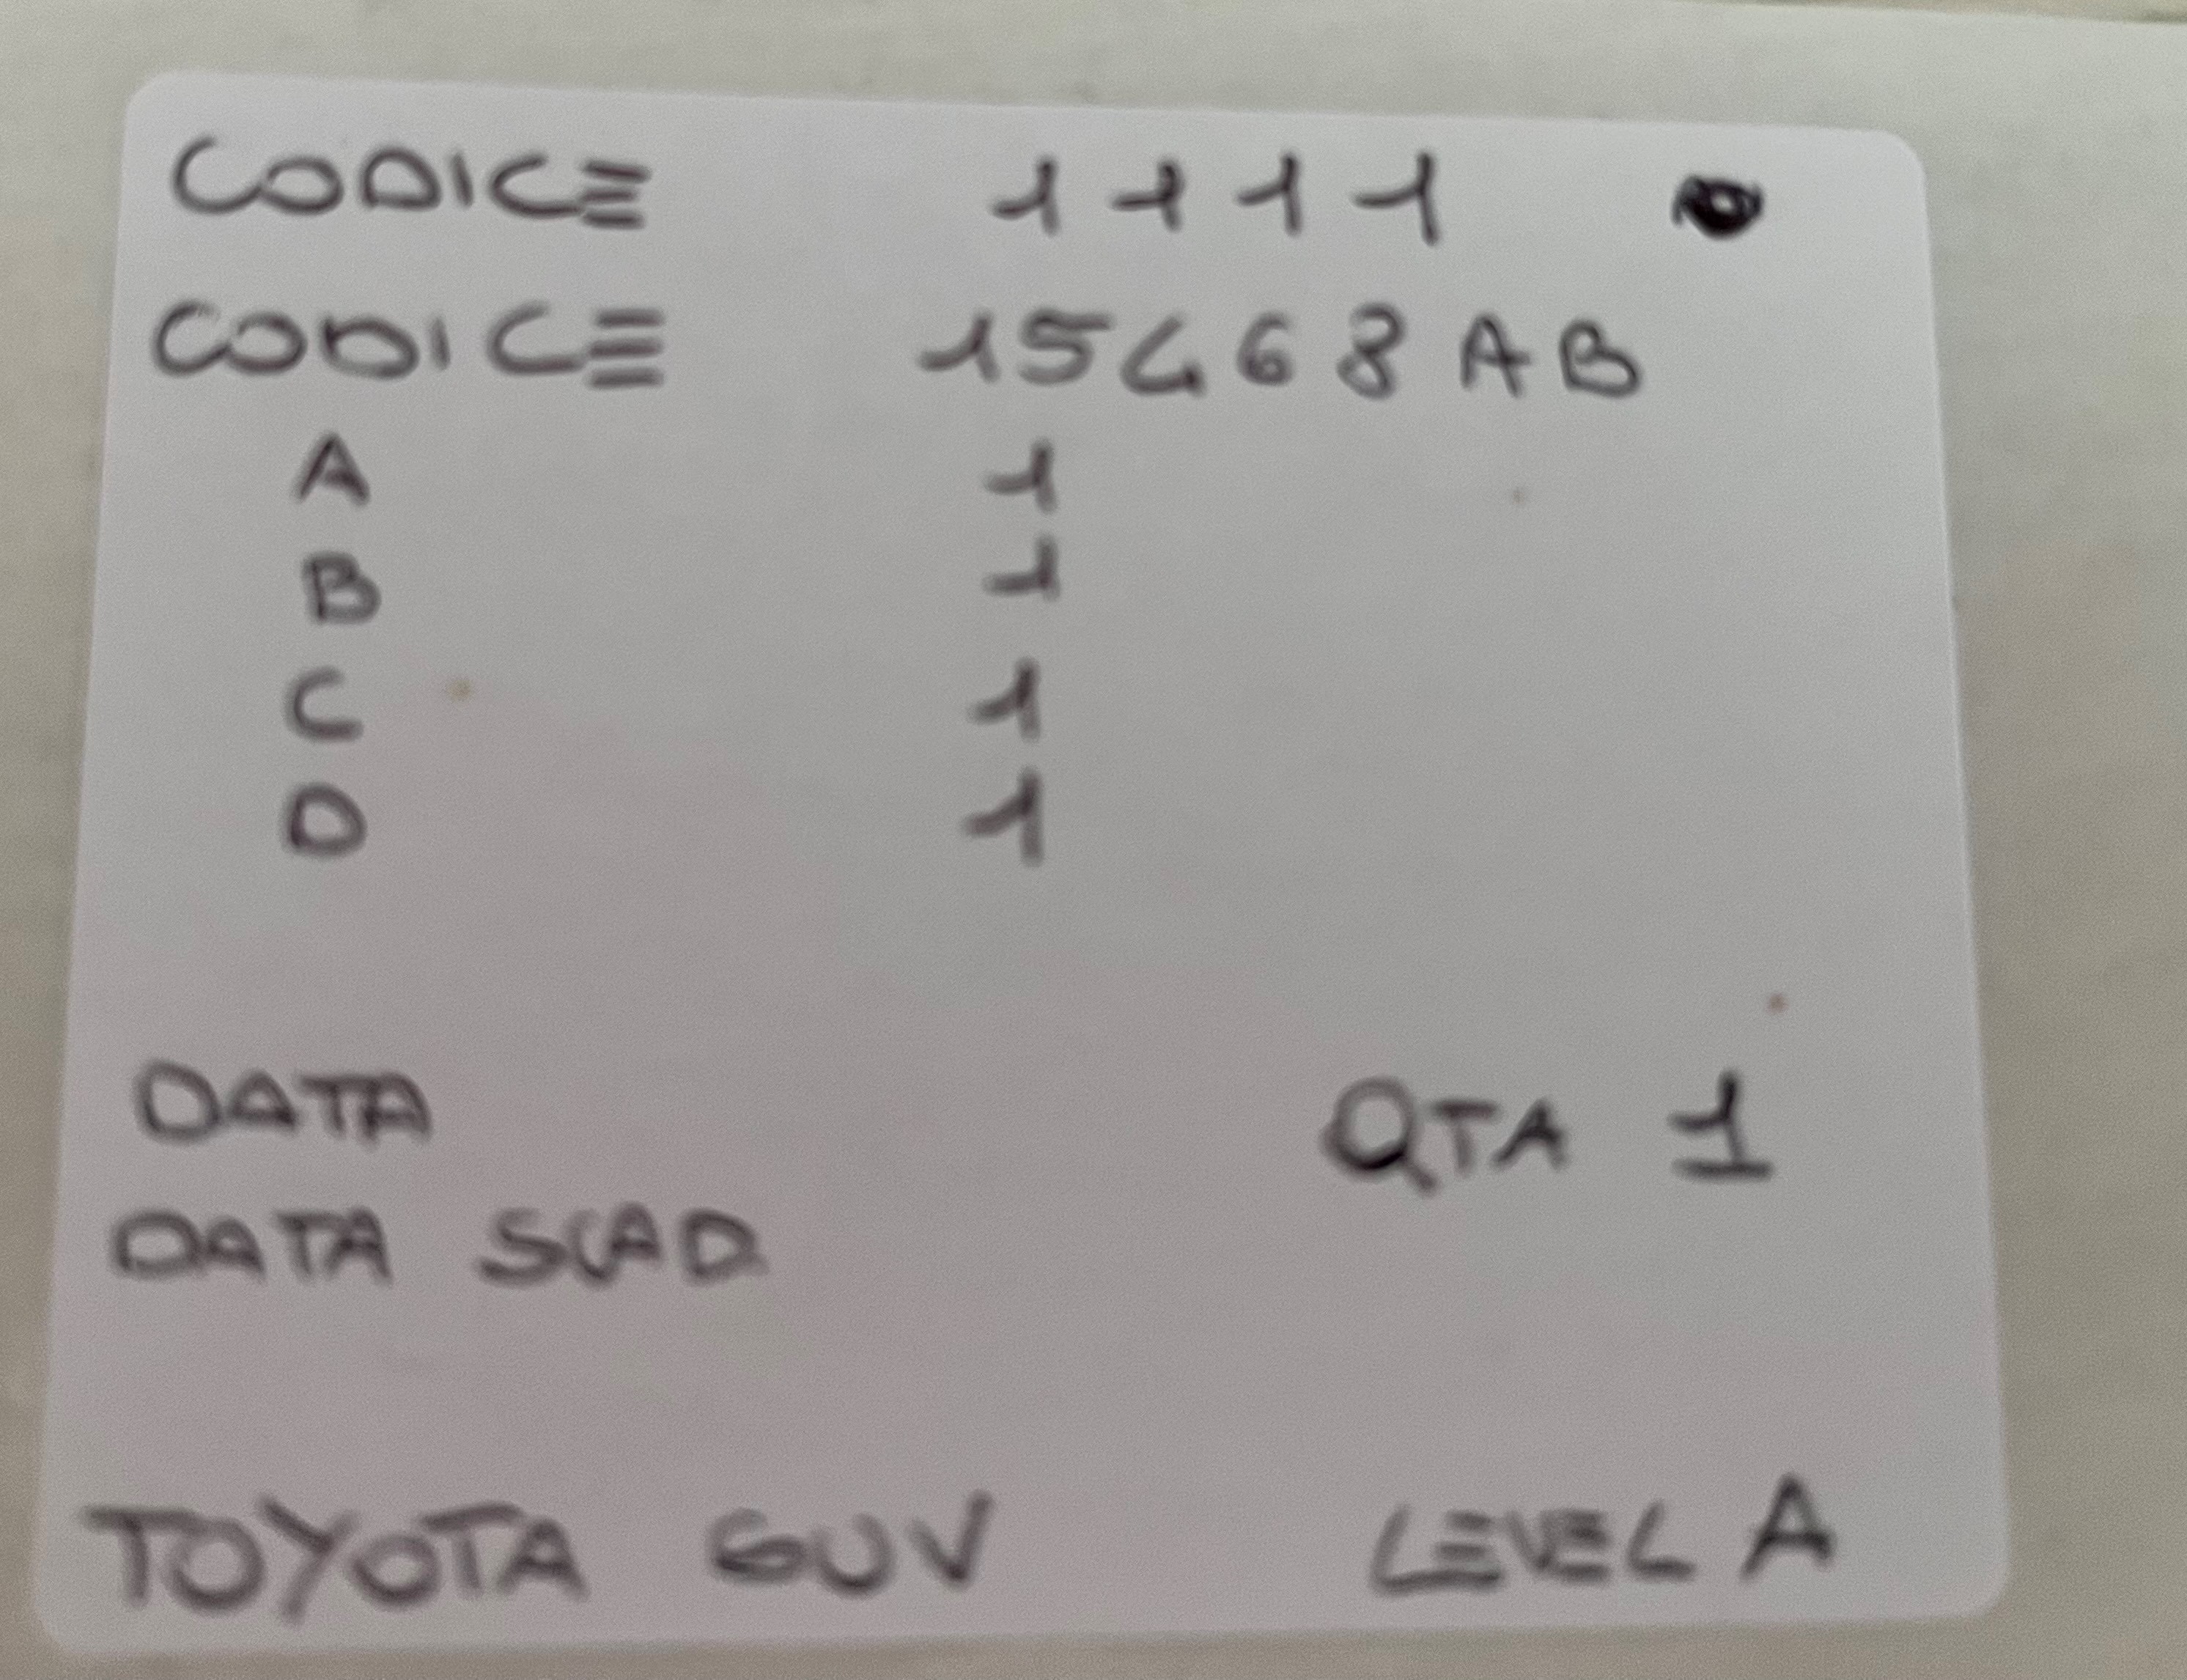 CODICE 1111
CODICE 15468AB
A 1
B 1
C 1
D 1
DATA
QTA 1
DATA SCAD
TOYOTA GUV LEVEL A